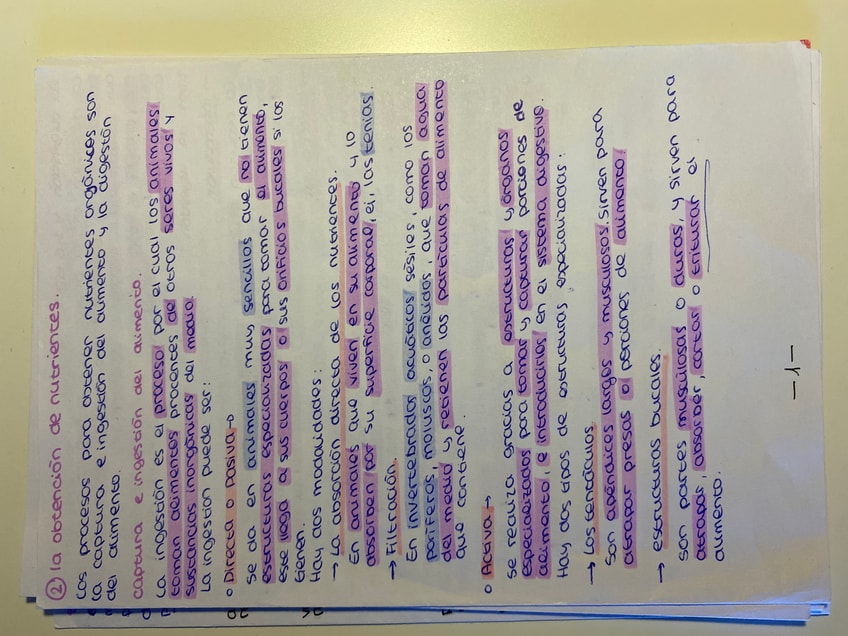 ② la obtención de nutrientes.
Los procesos para obtener nutrientes orgánicos son
la captura e ingestión del alimento y la digestión
del alimento.
captura e ingestión del alimento.
La ingestión es el proceso por el cual los animales
toman alimentos procentes de otros seres vivos y
sustancias inorgánicas del medio.
La ingestión puede ser:
o Directa o pasiva →
se da en animales muy sencillos que no tienen
estructuras especializadas para tomar el alimento,
este llega a sus cuerpos o sus orificios bucales si los
tienen.
Hay dos modalidades:
→ La absorción directa de los nutrientes.
En animales que viven en su alimento y lo
absorben por su superficie corporal, ej, las tenias.
→ Filtración.
En invertebrados acuáticos sésiles, como los
poríferos, moluscos, o anélidos, que toman agua
del medio y retienen las partículas de alimento
que contiene.
o Activa →
se realiza gracias a estructuras y órganos
especializados para tomar y capturar porciones de
alimento, e introducirles en el sistema digestivo.
Hay dos tipos de estructuras especializadas:
→ Los tentáculos.
Son apéndices largos y musculosos. Sirven para
atrapar presas o porciones de alimento.
→ estructuras bucales.
son partes musculosas o duras, y sirven para
atrapar, absorber, cortar o triturar el
alimento.
-1-